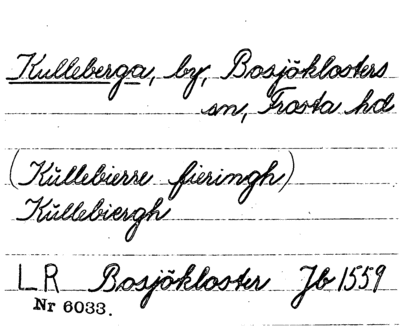 Kulleberga, by, Bosjöklosters
sn, Frosta hd
(Kŭllebierre fieringh)
Kŭllebiergh
LR Bosjökloster Jb 1559
Nr 6033.